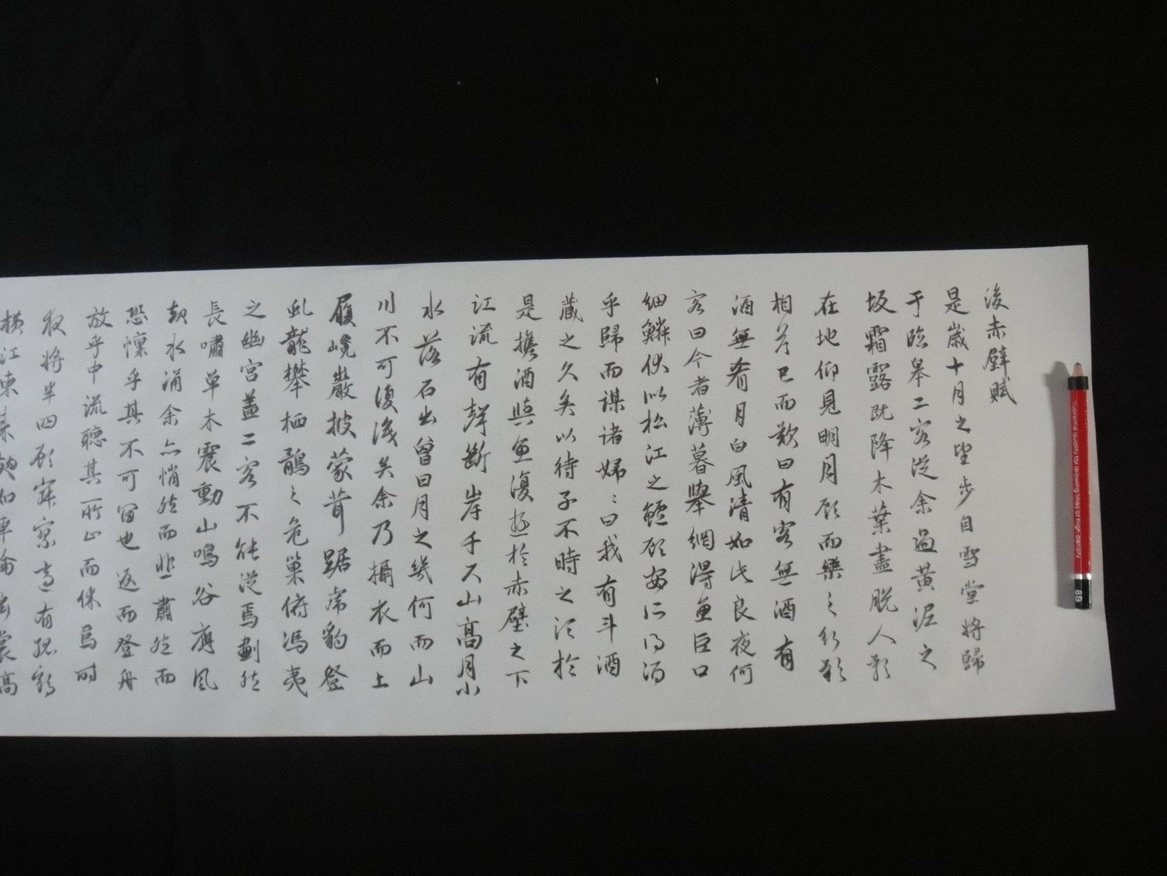 後赤壁賦
是歲十月之望步自雪堂將歸
于臨皋二客從余過黃泥之
坂霜露既降木葉盡脫人影
在地仰見明月顧而樂之行歌
相答已而歎曰有客無酒有
酒無肴月白風清如此良夜何
客曰今者薄暮舉網得魚巨口
細鱗狀似松江之鱸顧安所得酒
乎歸而謀諸婦〻曰我有斗酒
藏之久矣以待子不時之須於
是攜酒與魚復遊於赤壁之下
江流有聲斷岸千尺山高月小
水落石出曾日月之幾何而山
川不可復識矣余乃攝衣而上
履巉巖披蒙茸踞虎豹登
虬龍攀栖鶻之危巢俯馮夷
之幽宮蓋二客不能從焉劃然
長嘯草木震動山鳴谷應風
起水涌余亦悄然而悲肅然而
恐懍乎其不可留也返而登舟
放乎中流聽其所止而休焉時
夜將半四顧寂寥適有孤鶴
橫江東來翅如車輪玄裳縞
8B